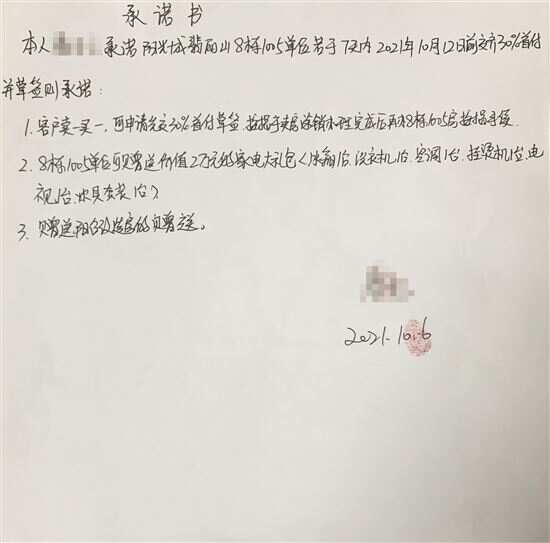 承诺书
本人 承诺阳光城翡丽山8栋1005单位若于7天内2021年10月12日前交齐30%首付
并草签则承诺:
1. 客户卖一买一,可申请先交30%首付草签, 完成后再 8栋1005房
2. 8栋1005单位可赠送价值2万元的家电大礼包(冰箱1台、洗衣机1台、空调1台、挂烫机1台、电
视1台、炊具套装1台)
3. 赠送
2021.10.6